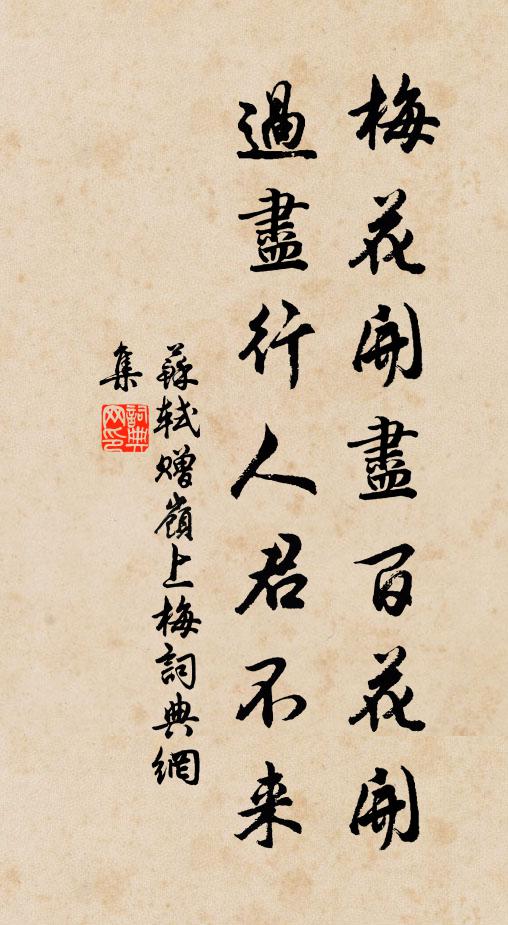 梅花開盡百花開
過盡行人君不来
蘇軾贈嶺上梅詞典網
集
詞典网印